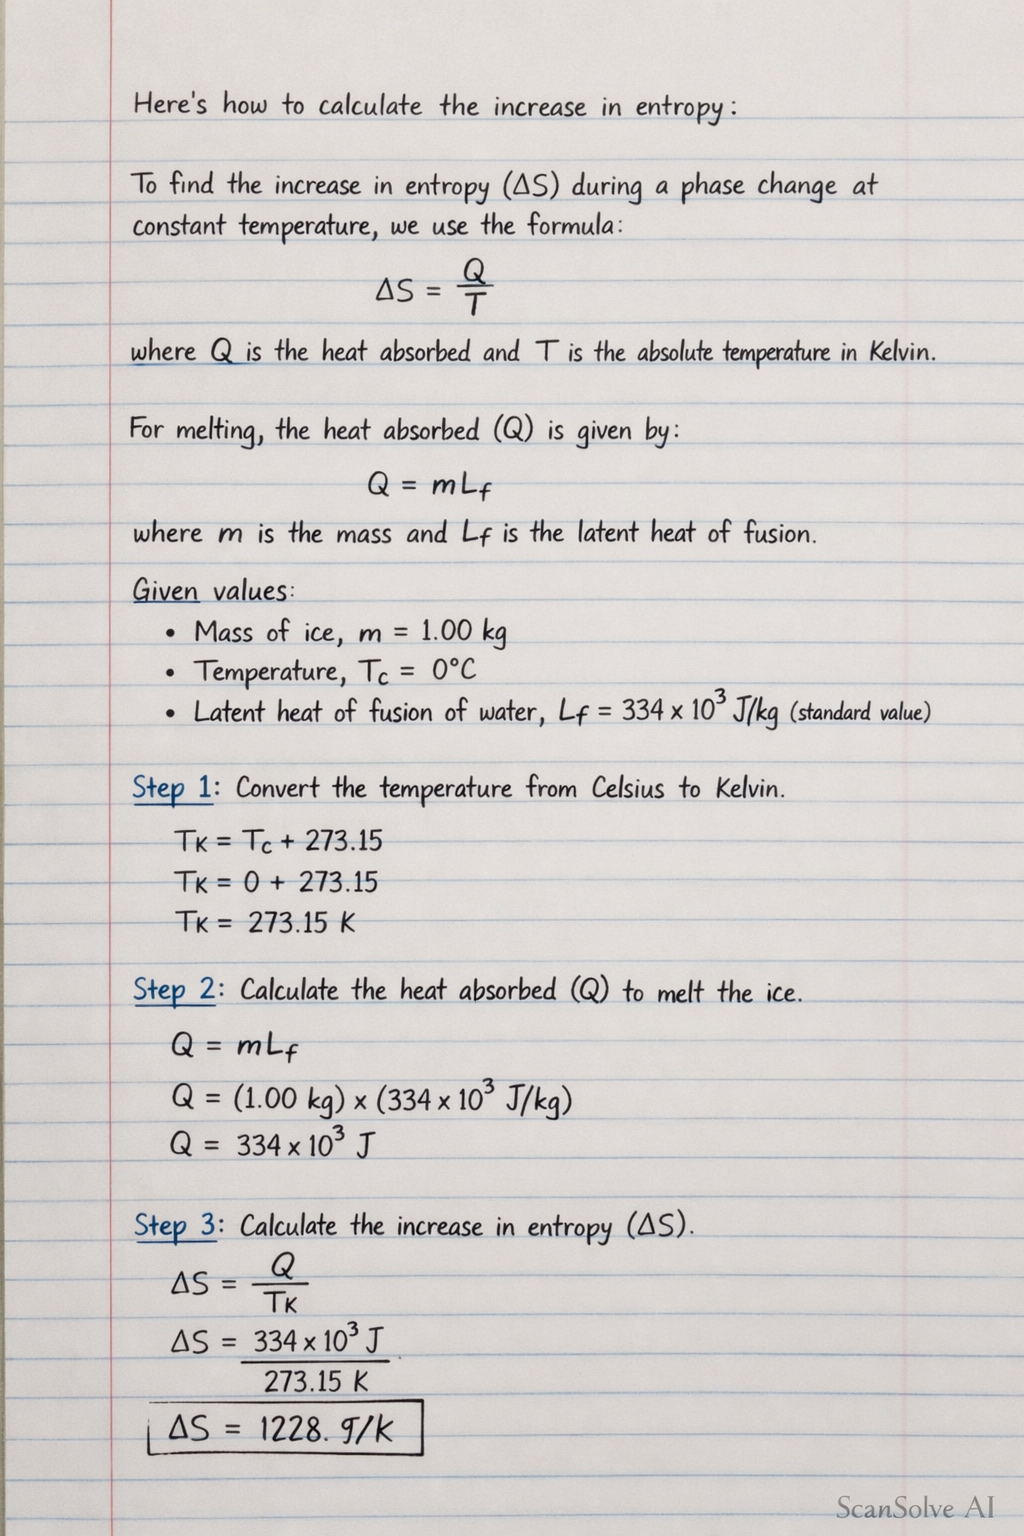 Here's how to calculate the increase in entropy:
To find the increase in entropy (ΔS) during a phase change at
constant temperature, we use the formula:
ΔS = Q/T
where Q is the heat absorbed and T is the absolute temperature in Kelvin.
For melting, the heat absorbed (Q) is given by:
Q = mLf
where m is the mass and Lf is the latent heat of fusion.
Given values:
• Mass of ice, m = 1.00 kg
• Temperature, Tc = 0°C
• Latent heat of fusion of water, Lf = 334 x 10³ J/kg (standard value)
Step 1: Convert the temperature from Celsius to Kelvin.
TK = Tc + 273.15
TK = 0 + 273.15
TK = 273.15 K
Step 2: Calculate the heat absorbed (Q) to melt the ice.
Q = mLf
Q = (1.00 kg) x (334 x 10³ J/kg)
Q = 334 x 10³ J
Step 3: Calculate the increase in entropy (ΔS).
ΔS = Q/TK
ΔS = 334 x 10³ J / 273.15 K
ΔS = 1228. J/K
ScanSolve AI